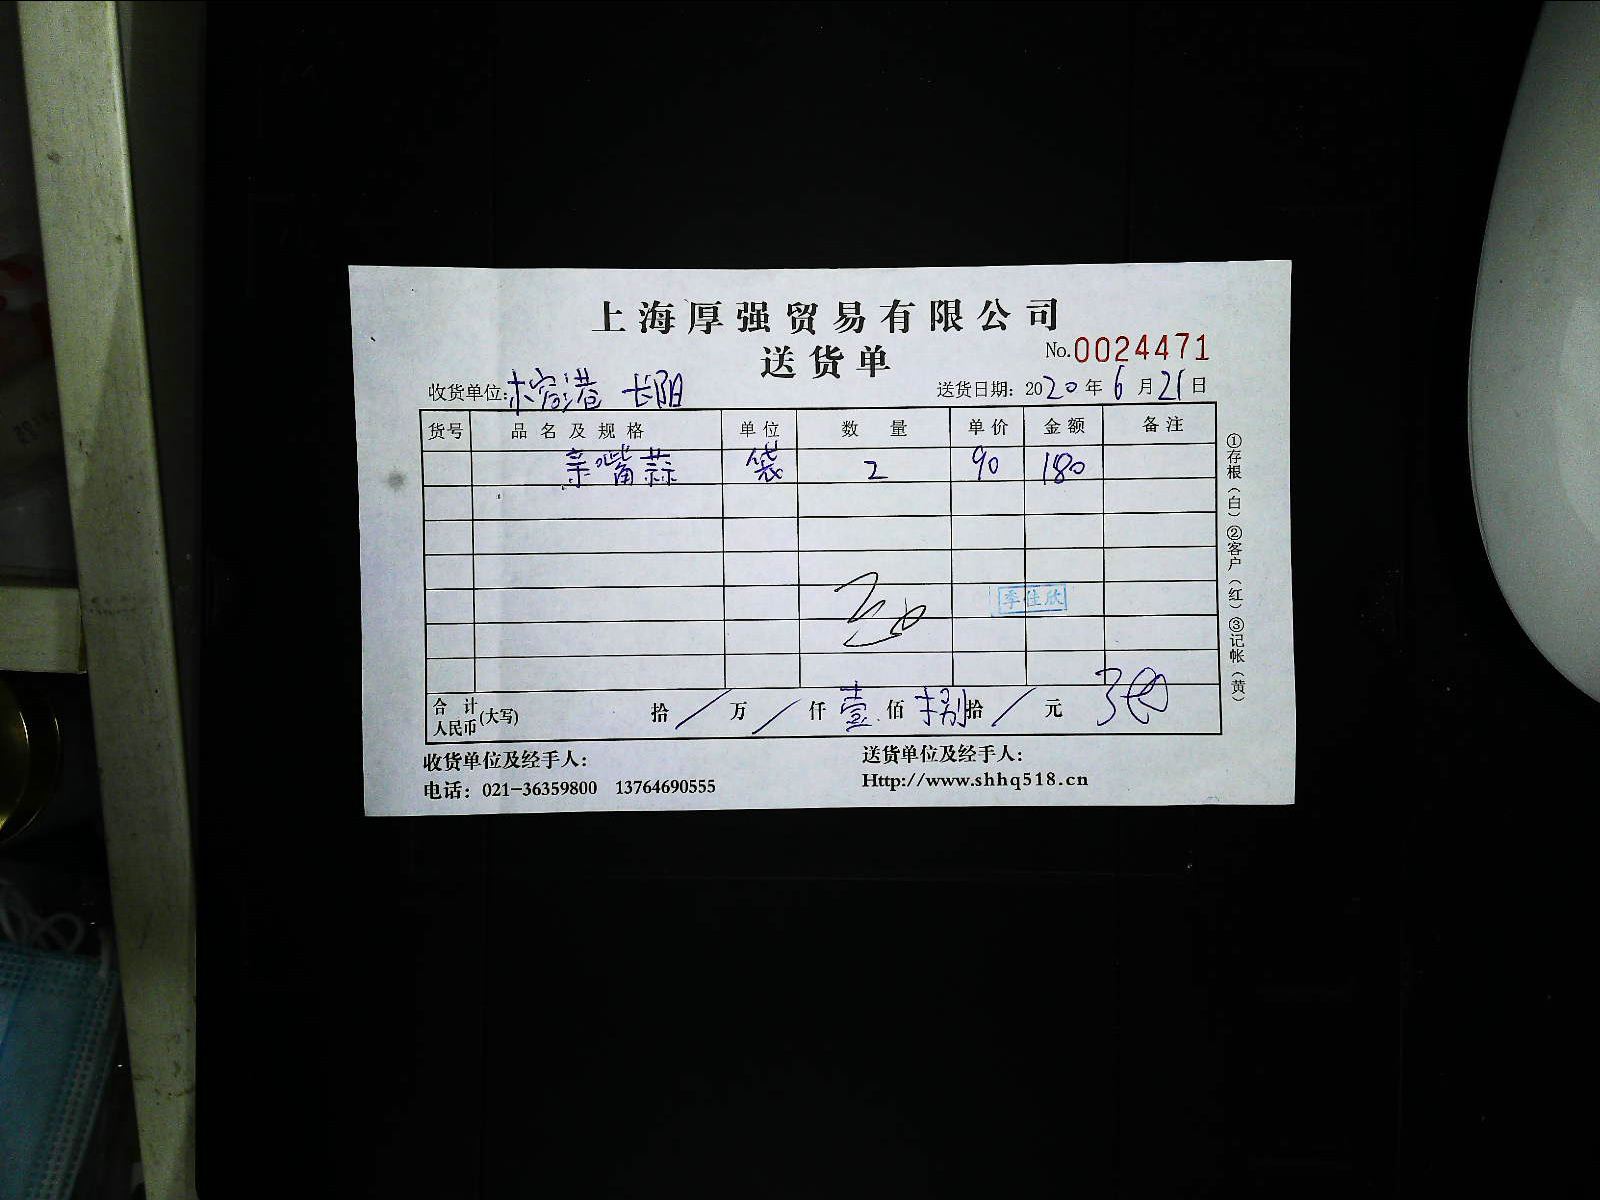 上海厚强贸易有限公司
送货单
No.0024471
收货单位: 长阳
送货日期: 2020年6月21日
货号 品名及规格 单位 数量 单价 金额 备注
亲嘴蒜 袋 2 90 180
李佳欣
合计人民币(大写) 拾/万/仟壹佰捌拾/元
收货单位及经手人:
送货单位及经手人:
电话: 021-36359800 13764690555
Http://www.shhq518.cn
①存根(白)②客户(红)③记帐(黄)